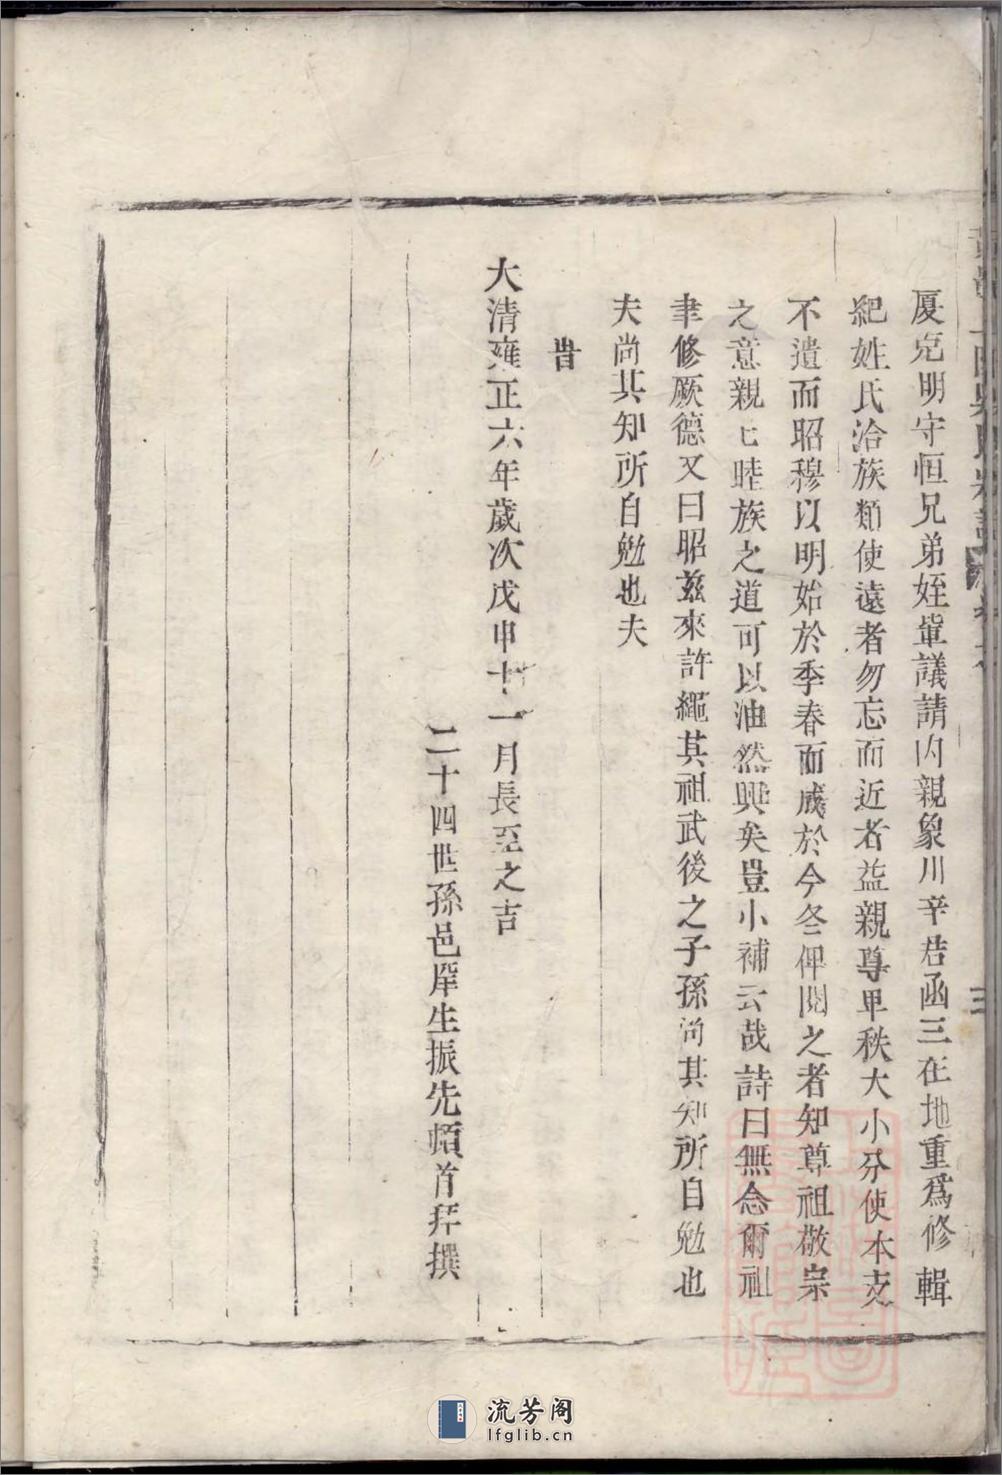 厦克明守恒兄弟姪輩議請内親象川辛君函三在地重爲修輯
紀姓氏洽族類使遠者勿忘而近者益親尊卑秩大小分使本支
不遺而昭穆以明始於季春而成於今冬俾閱之者知尊祖敬宗
之意親匕睦族之道可以油然興矣豈小補云哉詩曰無念爾祖
聿修厥德又曰昭兹來許繩其祖武後之子孫尚其知所自勉也
夫尚其知所自勉也夫
旹
大清雍正六年歲次戊申十一月長至之吉
二十四世孫邑庠生振先頓首拜撰
流芳阁
lfglib.cn